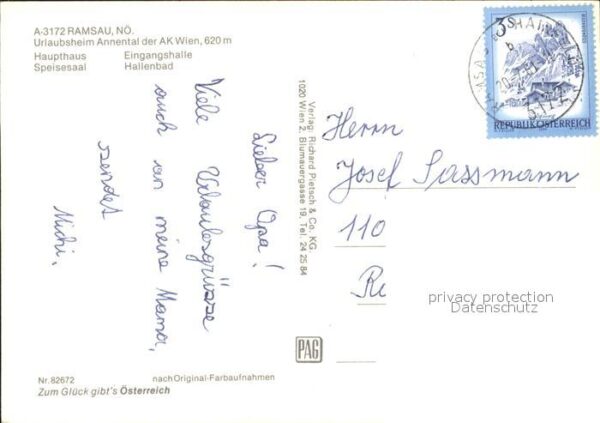 A-3172 RAMSAU, NÖ.
Urlaubsheim Annental der AK Wien, 620 m
Haupthaus Eingangshalle
Speisesaal Hallenbad
Lieber Opa!
Viele Urlaubsgrüsse
auch an meine Mama,
sendet
Michi,
Verlag: Richard Pietsch & Co. KG.
1020 Wien 2, Blumauergasse 19, Tel. 24 25 84
3S
REPUBLIK ÖSTERREICH
Herrn
Josef Sassmann
110
Re
privacy protection
Datenschutz
PAG
Nr. 82672 nach Original-Farbaufnahmen
Zum Glück gibt's Österreich